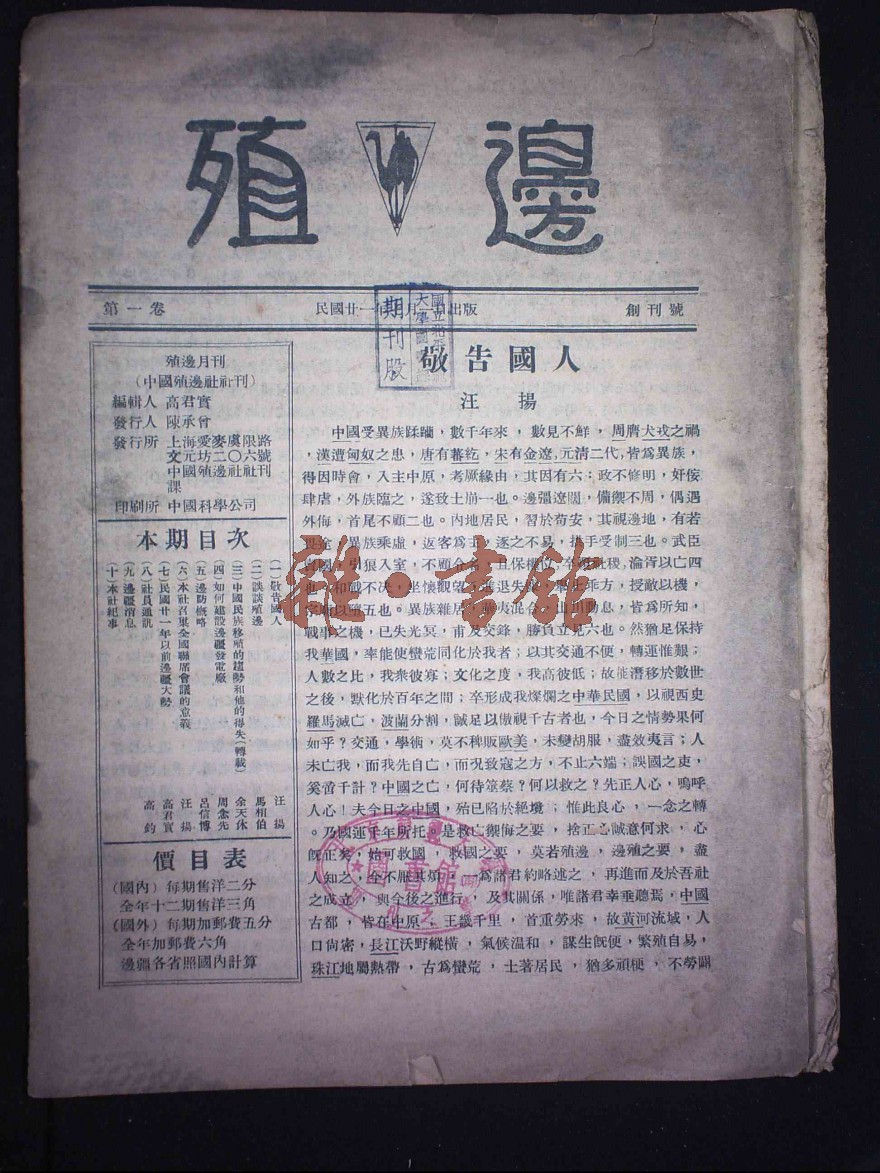 殖邊
第一卷
民國廿一年 月 日出版
創刊號
國立北平
大學圖書館
期刊股
殖邊月刊
(中國殖邊社社刊)
編輯人 高君實
發行人 陳承曾
發行所 上海愛麥虞限路
文元坊二〇六號
中國殖邊社社刊
課
印刷所 中國科學公司
本期目次
(一)敬告國人 汪揚
(二)談談殖邊 馬相伯
(三)中國民族移殖的趨勢和他的得失(轉載) 余天休
(四)如何建設邊疆發電廠 周念先
(五)邊防槪略 呂信博
(六)本社召集全國聯席會議的意義 汪揚
(七)民國廿一年以前邊疆大勢 高君實
(八)社員通訊 高鈞
(九)邊疆消息
(十)本社紀事
價目表
(國內)每期售洋二分
全年十二期售洋三角
(國外)每期加郵費五分
全年加郵費六角
邊疆各省照國內計算
敬告國人
汪揚
中國受異族蹂躪,數千年來,數見不鮮,周膺犬戎之禍
,漢遭匈奴之患,唐有蕃紇,宋有金遼,元清二代,皆爲異族,
得因時會,入主中原,考厥緣由,其因有六;政不修明,奸佞
肆虐,外族臨之,遂致土崩一也。邊疆遼闊,備禦不周,偶遇
外侮,首尾不顧二也。內地居民,習於苟安,其視邊地,有若
畏途,異族乘虛,返客爲主,逐之不易,拱手受制三也。武臣
國,引狼入室,不顧 ,且保 位,卒 社稷,淪胥以亡四
也。和戰不決,坐懷觀望,進退失 ,舉止乖方,授敵以機,
宗 以墮五也。異族雜居, 混合,出川動息,皆爲所知,
戰事之機,已失光冥,甫及交鋒,勝負立見六也。然猶足保持
我華國,率能使蠻荒同化於我者;以其交通不便,轉運惟艱;
人數之比,我衆彼寡;文化之度,我高彼低;故能潛移於數世
之後,默化於百年之間;卒形成我燦爛之中華民國,以視西史
羅馬滅亡,波蘭分割,誠足以傲視千古者也,今日之情勢果何
如乎?交通,學術,莫不稗販歐美,未變胡服,盡效夷言;人
未亡我,而我先自亡,而況致寇之方,不止六端;誤國之吏,
奚啻千計?中國之亡,何待筮蔡?何以救之?先正人心,嗚呼
人心!夫今日之中國,殆已陷於絶境;惟此良心,一念之轉
。乃國運千年所托。是救亡禦侮之要,捨正心誠意何求,心
旣正矣,始可救國,救國之要,莫若殖邊,邊殖之要,盡
人知之,全不厭其煩,一爲諸君約略述之,再進而及於吾社
之成立,與今後之進行,及其關係,唯諸君幸垂聽焉,中國
古都,皆在中原,王畿千里,首重勞來,故黄河流域,人
口尙密,長江沃野縱橫,氣候溫和,謀生旣便,繁殖自易,
珠江地屬熱帶,古爲蠻荒,土著居民,猶多頑梗,不勞闢
圖書館
龍·書館